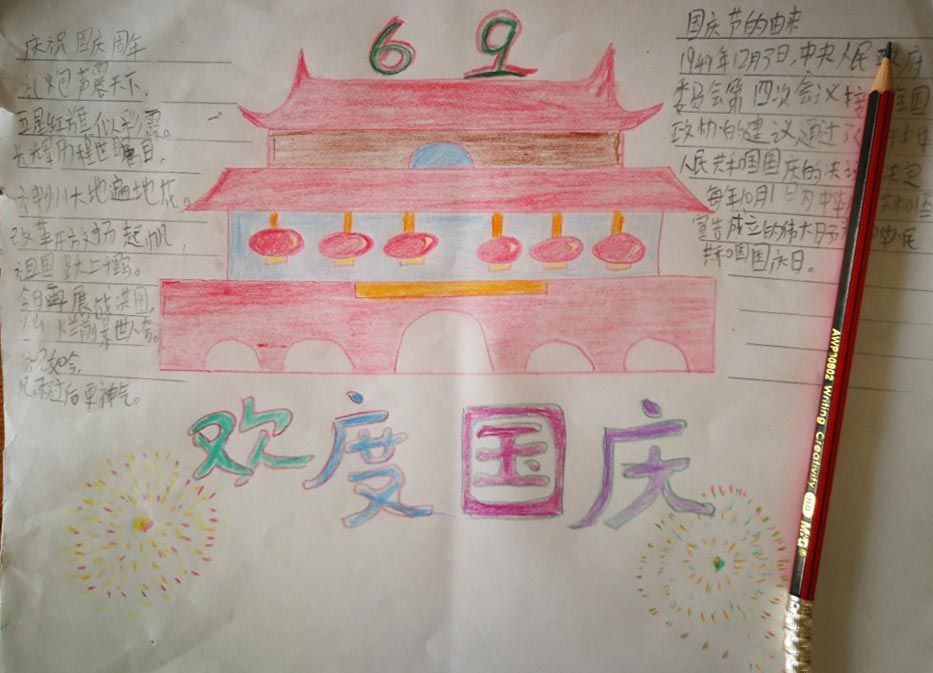 69
庆祝国庆周年
礼炮声震天下,
五星红旗似彩霞。
光辉历程世瞩目,
神州大地遍地花。
改革开放扬起帆,
祖国跃上千
今日再展
灿烂前景世人夸。
如今,
风雨过后更神气。
国庆节的由来
1949年12月3日,中央人民政府
委员会第四次会议接 全国
政协的建议通过了
人民共和国国庆的决 决定
每年10月1日为中华
宣告成立的伟大日子 人民
共和国国庆日。
欢度国庆
AWP30802 Writing Creativity M&G